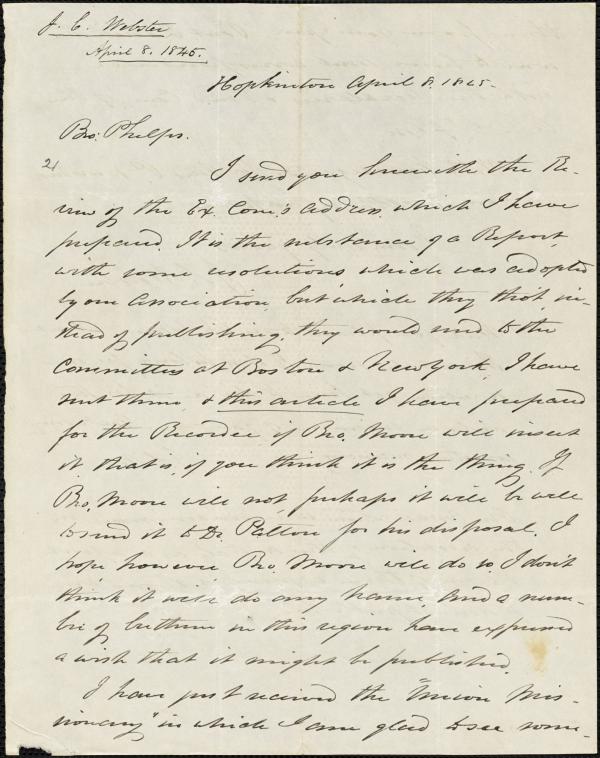 J. C. Webster
April 8. 1845.
Hopkinton April 8. 1845.
Bro: Phelps.
21
I send you herewith the Re-
view of the Ex. Com's address, which I have
prepared. It is the substance of a Report,
with some resolutions which was adopted
by our Association, but which they tho't in-
stead of publishing, they would send to the
Committees at Boston & New York. I have
sent them, & this article I have prepared
for the Recorder, if Bro. Moore will insert
it, that is, if you think it is the thing. If
Bro. Moore will not, perhaps it will be well
to send it to Dr. Patton for his disposal. I
hope however Bro. Moore will do so. I don't
think it will do any harm, and a num-
ber of brethren in this region have expressed
a wish that it might be published.
I have just received the "Union Mis-
sionary" in which I am glad to see some-